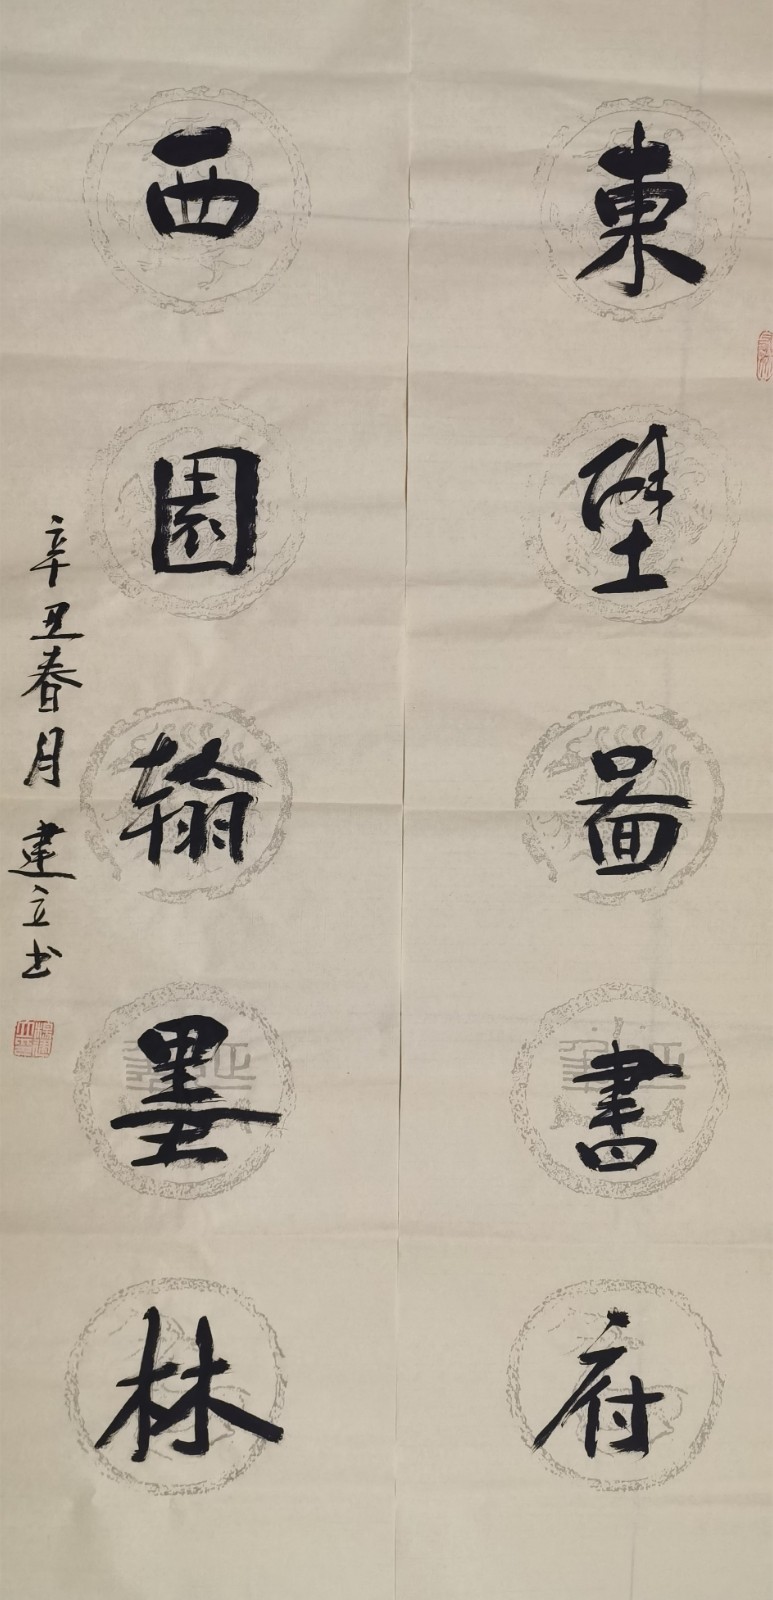 東壁啚書府
西園翰墨林
辛丑春月 建立书